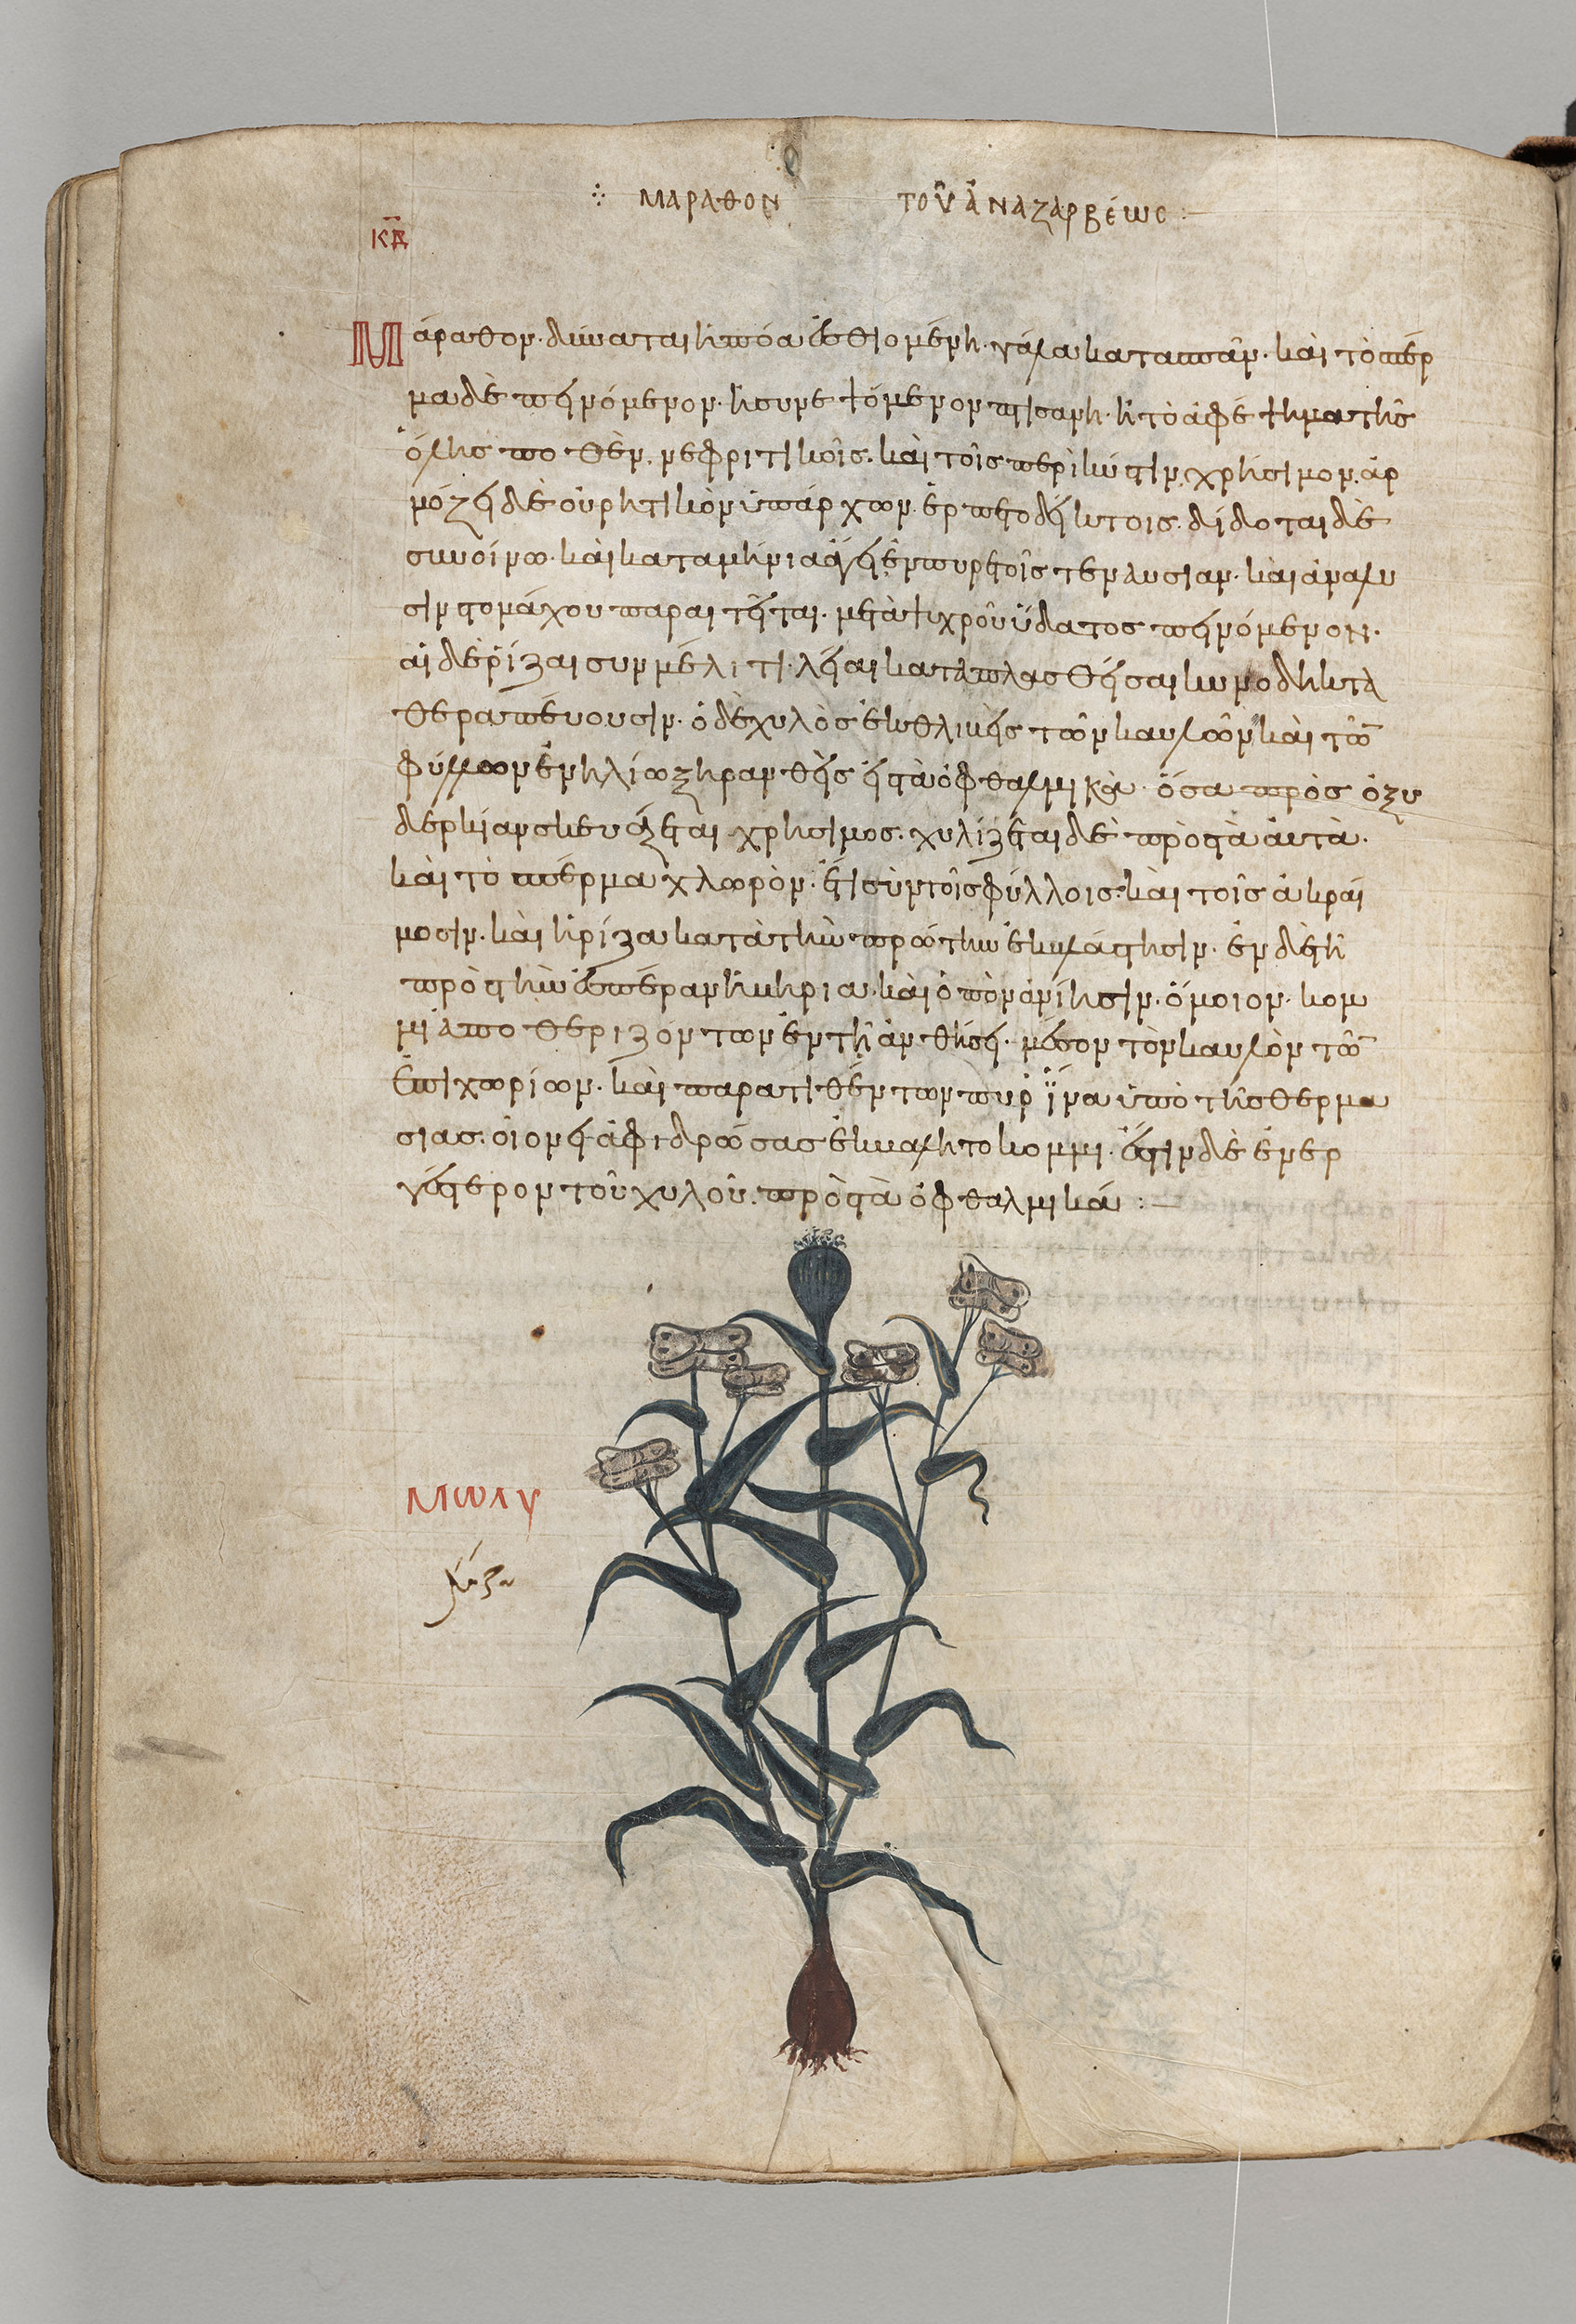 ΜΑΡΑΘΟΝ ΤΟΥ͂ ἈΝΑΖΑΡΒΈΩϹ :
ΚΒ
Μάραθον· δύναται ἡ πόα ἐσθιομένη· γάλα κατασπᾶν· καὶ τὸ σπέρ
μα δὲ πινόμενον· ἢ συνεψόμενον πτισάνη· ἢ τὸ ἀφέψημα τῆς
ὅλης ποθὲν· νεφριτικοῖς· καὶ τοῖς περὶ κύστιν χρήσιμον· ἁρ
μόζει δὲ οὐρητικὸν ὑπάρχων· ἑρπετοδήκτοις· δίδοται δὲ
συν οίνω· καὶ καταμήνια ἄγει ἐν πυρετοῖς τεν λυσιαν· καὶ ἀναλυ
σιν στομάχου παραιτεῖται· μετὰ ψυχροῦ ὕδατος πεινόμενον·
αἱ δὲ ῥίζαι συν μέλιτι λεῖαι καταπλασθεῖσαι κυνοδηκτα
θεραπέυουσιν· ὁ δὲ χυλὸς ἐκθλιβεὶς τῶν καυλῶν καὶ τῶν
φύλλων ἐν ηλίω ξηρανθεὶς εἰς τὰ ὀφθαλμικὰ· ὅσα πρὸς ὀξυ
δερκίαν σκευάζεται χρησιμος· χυλίζεται δὲ πρὸς τὰ ἀυτὰ·
καὶ τὸ σπέρμα χλωρὸν· ἔτι σὺν τοῖς φύλλοις· καὶ τοῖς ἀκραί
μοσιν· καὶ ἡ ρίζα κατὰ τὴν πρώτην ἐκβλάστησιν· ἐν δὲ τῆ
πρὸς τὴν ἑσπέραν ἡμηρια· καὶ ὀπὸν ἀνίησιν· ὅμοιον· κομ
μι ἀποθεριζόντων ἐν τῆ ἀνθήσει· μέσον τὸν καυλὸν τῶν
ἐπιχωρίων· καὶ παρατιθέντων πυρὶ ἵνα ὑπὸ τῆς θερμα
σιας· οἱονεὶ ἀφιδρώσας ἐκβαλη το κομμι· ἔστιν δὲ ἐνερ
γέστερον τοῦ χυλοῦ· πρὸς τὰ ὀφθαλμικά :
ΜΩΛΥ